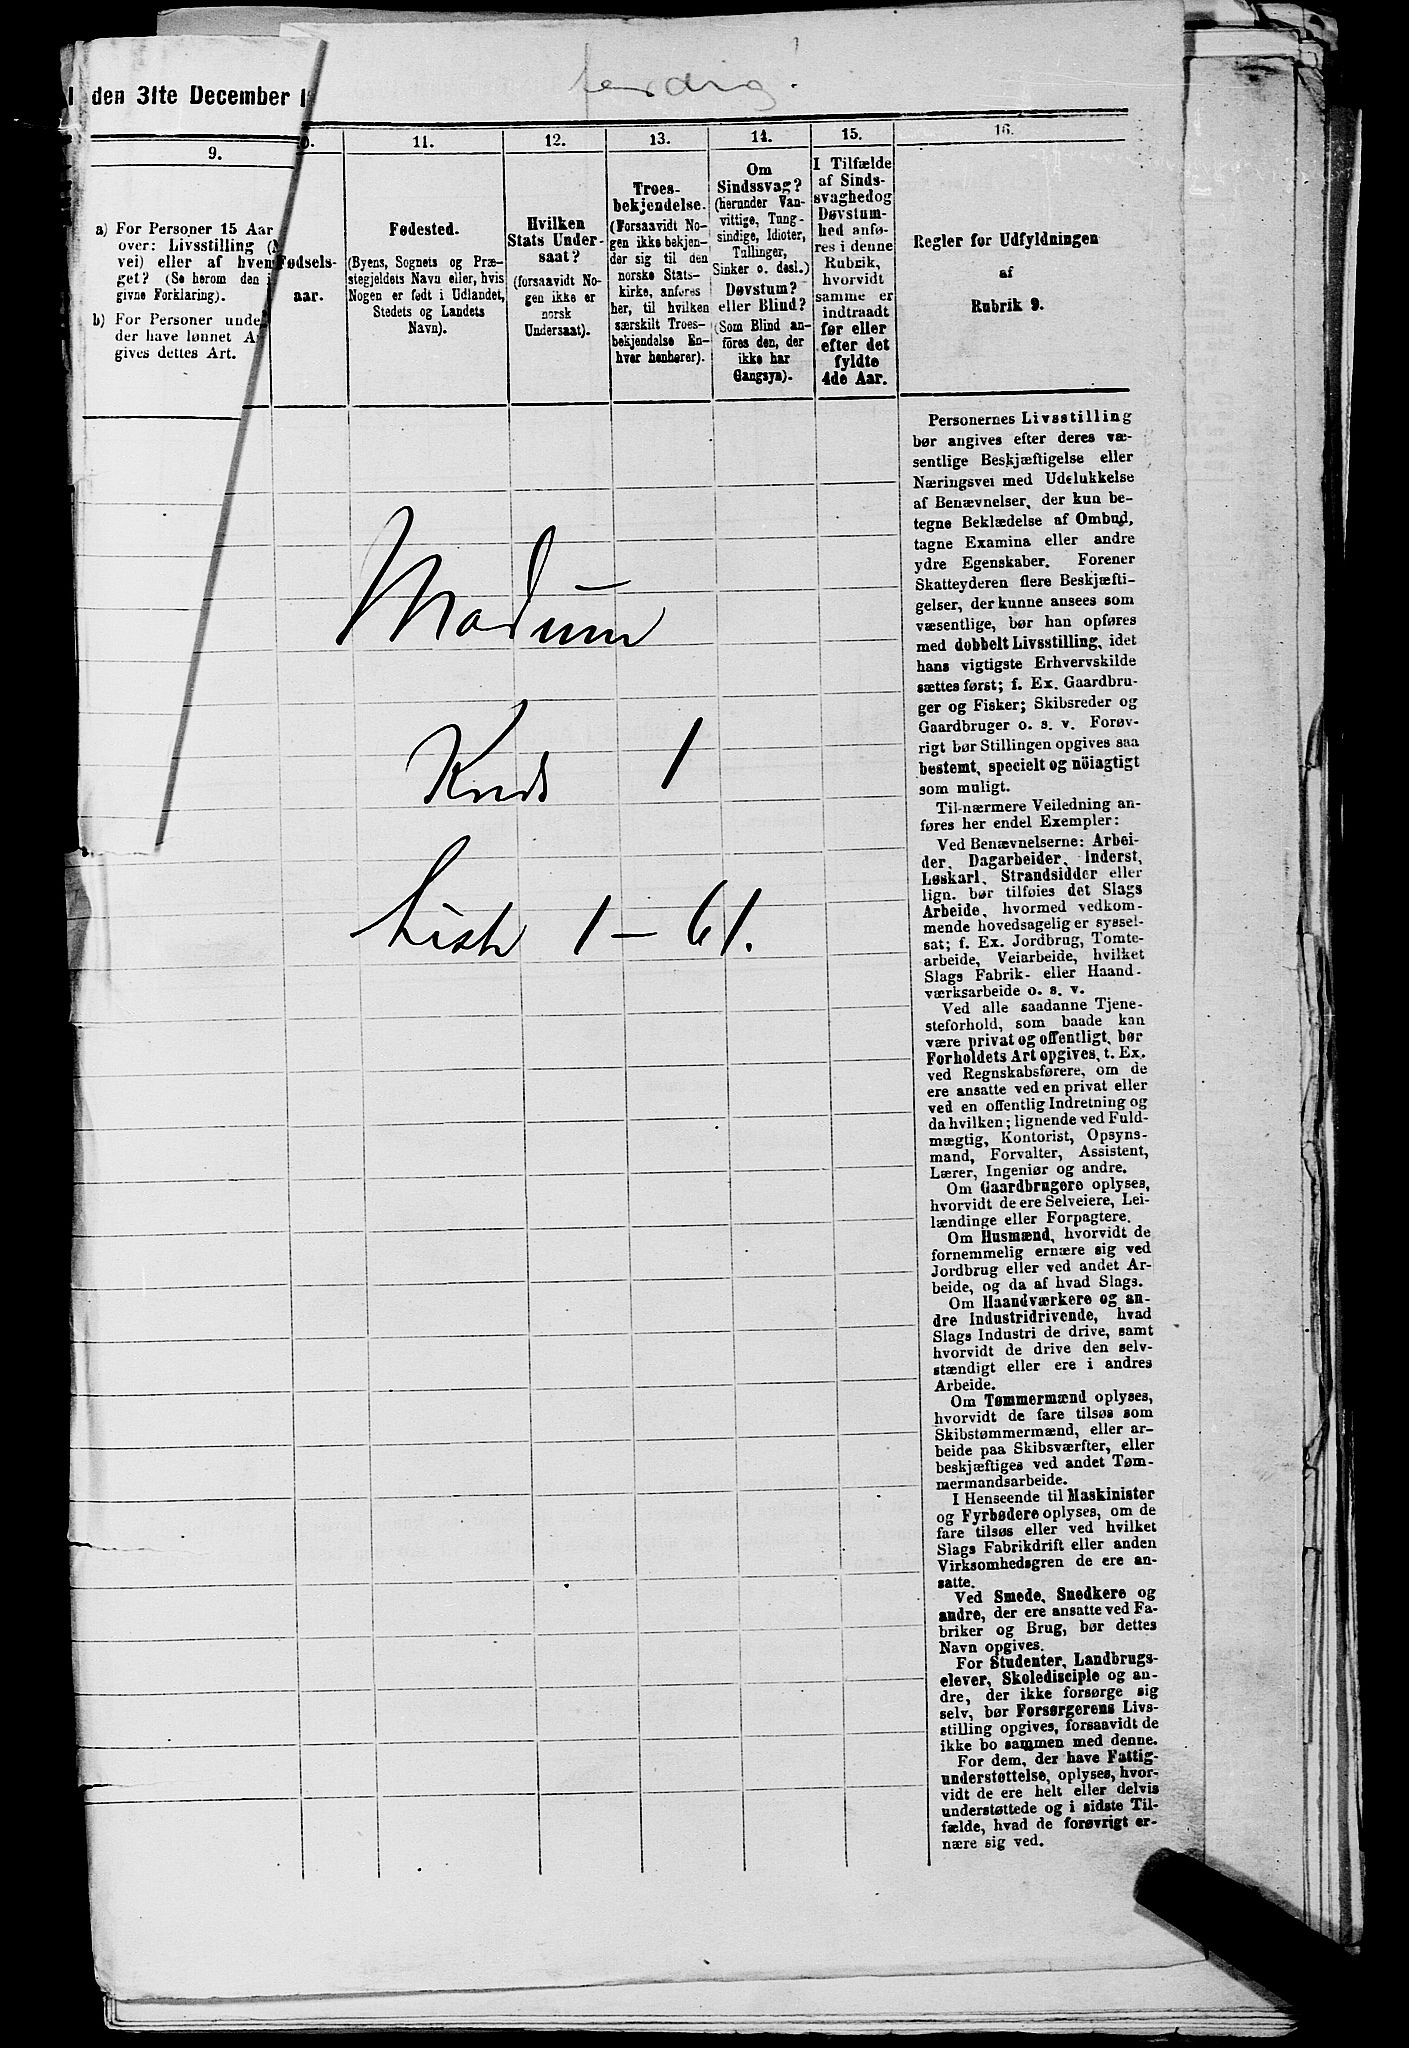 færdig!
den 31te December 1
9.
a) For Personer 15 Aar
over: Livsstilling (
vei) eller af hvem
get? (Se herom den
givne Forklaring).
b) For Personer unde
der have lønnet A
gives dettes Art.
Fødsels-
aar.
11.
Fødested.
(Byens, Sognets og Præ-
stegjeldets Navn eller, hvis
Nogen er født i Udlandet,
Stedets og Landets
Navn).
12.
Hvilken
Stats Under-
saat?
(forsaavidt No-
gen ikke er
norsk
Undersaat).
13.
Troes-
bekjendelse.
(Forsaavidt No-
gen ikke bekjen-
der sig til den
norske Stats-
kirke, anføres
her, til hvilken
særskilt Troes-
bekjendelse En-
hver henhører).
14.
Om
Sindssvag?
(herunder Van-
vittige, Tung-
sindige, Idioter,
Tullinger,
Sinker o. desl.)
Døvstum?
eller Blind?
(Som Blind an-
føres den, der
ikke har
Gangsyn).
15.
I Tilfælde
af Sinds-
svaghed og
Døvstum-
hed anfø-
res i denne
Rubrik,
hvorvidt
samme er
indtraadt
før eller
efter det
fyldte
4de Aar.
16.
Regler for Udfyldningen
af
Rubrik 9.
Personernes Livsstilling
bør angives efter deres væ-
sentlige Beskjæftigelse eller
Næringsvei med Udelukkelse
af Benævnelser, der kun be-
tegne Beklædelse af Ombud,
tagne Examina eller andre
ydre Egenskaber. Forener
Skatteyderen flere Beskjæfti-
gelser, der kunne ansees som
væsentlige, bør han opføres
med dobbelt Livsstilling, idet
hans vigtigste Erhvervskilde
sættes først; f. Ex. Gaardbru-
ger og Fisker; Skibsreder og
Gaardbruger o. s. v. Forøv-
rigt bør Stillingen opgives saa
bestemt, specielt og nöiagtigt
som muligt.
Til nærmere Veiledning an-
føres her endel Exempler:
Ved Benævnelserne: Arbei-
der, Dagarbeider, Inderst,
Løskarl, Strandsidder eller
lign. bør tilføies det Slags
Arbeide, hvormed vedkom-
mende hovedsagelig er syssel-
sat; f. Ex. Jordbrug, Tomte-
arbeide, Veiarbeide, hvilket
Slags Fabrik- eller Haand-
værksarbeide o. s. v.
Ved alle saadanne Tjene-
steforhold, som baade kan
være privat og offentligt, bør
Forholdets Art opgives, t. Ex.
ved Regnskabsførere, om de
ere ansatte ved en privat eller
ved en offentlig Indretning og
da hvilken; lignende ved Fuld-
mægtig, Kontorist, Opsyns-
mand, Forvalter, Assistent,
Lærer, Ingeniør og andre.
Om Gaardbrugere oplyses,
hvorvidt de ere Selveiere, Lei-
lændinge eller Forpagtere.
Om Husmænd, hvorvidt de
fornemmelig ernære sig ved
Jordbrug eller ved andet Ar-
beide, og da af hvad Slags.
Om Haandværkere og an-
dre Industridrivende, hvad
Slags Industri de drive, samt
hvorvidt de drive den selv-
stændigt eller ere i andres
Arbeide.
Om Tømmermænd oplyses,
hvorvidt de fare tilsøs som
Skibstømmermænd, eller ar-
beide paa Skibsværfter, eller
beskjæftiges ved andet Tøm-
mermandsarbeide.
I Henseende til Maskinister
og Fyrbødere oplyses, om de
fare tilsøs eller ved hvilket
Slags Fabrikdrift eller anden
Virksomhedsgren de ere an-
satte.
Ved Smede, Snedkere og
andre, der ere ansatte ved Fa-
briker og Brug, bør dettes
Navn opgives.
For Studenter, Landbrugs-
elever, Skoledisciple og an-
dre, der ikke forsørge sig
selv, bør Forsørgerens Livs-
stilling opgives, forsaavidt de
ikke bo sammen med denne.
For dem, der have Fattig-
understøttelse, oplyses, hvor-
vidt de ere helt eller delvis
understøttede og i sidste Til-
fælde, hvad de forøvrigt er-
nære sig ved.
Modum
Kreds 1
Liste 1 – 61.